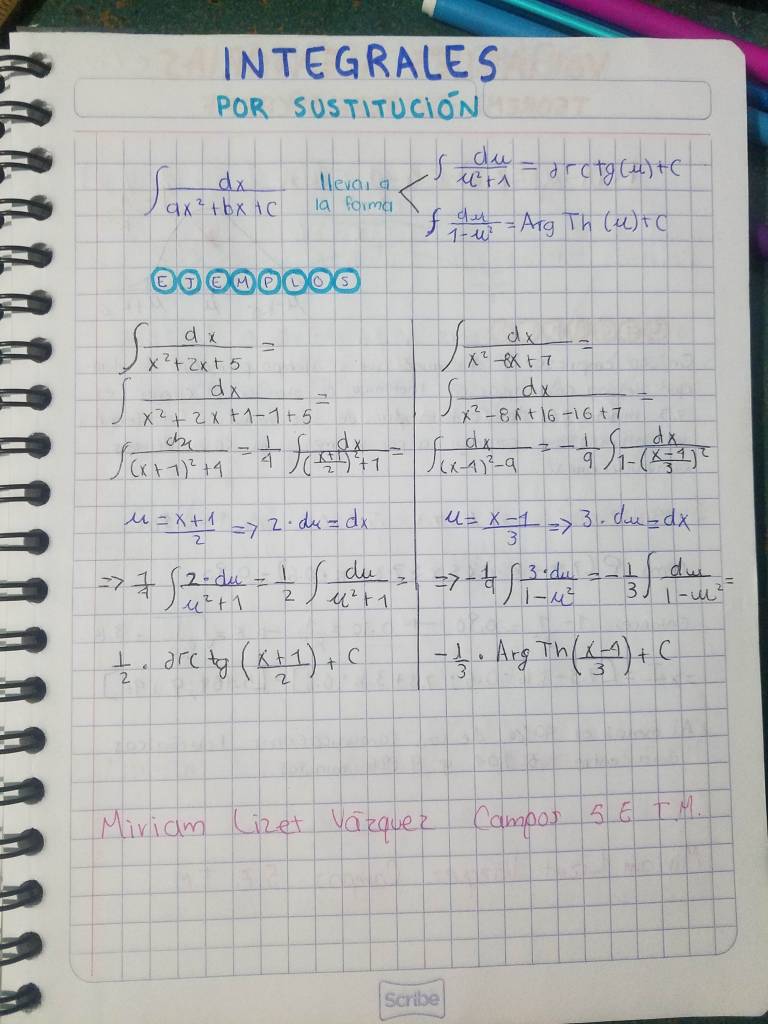 INTEGRALES
POR SUSTITUCIÓN
∫ dx/(ax²+bx+c) llevar a la forma
∫ du/(u²+1) = arc tg(u)+C
∫ du/(1-u²) = Arg Th (u)+C
EJEMPLOS
∫ dx/(x²+2x+5) =
∫ dx/(x²+2x+1-1+5) =
∫ dx/((x+1)²+4) = 1/4 ∫ dx/(((x+1)/2)²+1) =
u = (x+1)/2 => 2·du = dx
=> 1/4 ∫ 2·du/(u²+1) = 1/2 ∫ du/(u²+1) =
1/2 · arc tg ((x+1)/2) + C
∫ dx/(x²-8x+7) =
∫ dx/(x²-8x+16-16+7) =
∫ dx/((x-4)²-9) = -1/9 ∫ dx/(1-((x-4)/3)²)
u = (x-1)/3 => 3·du = dx
=> -1/9 ∫ 3·du/(1-u²) = -1/3 ∫ du/(1-u²) =
-1/3 · Arg Th ((x-4)/3) + C
Miriam Lizet Vázquez Campos 5 E T.M.
Scribe